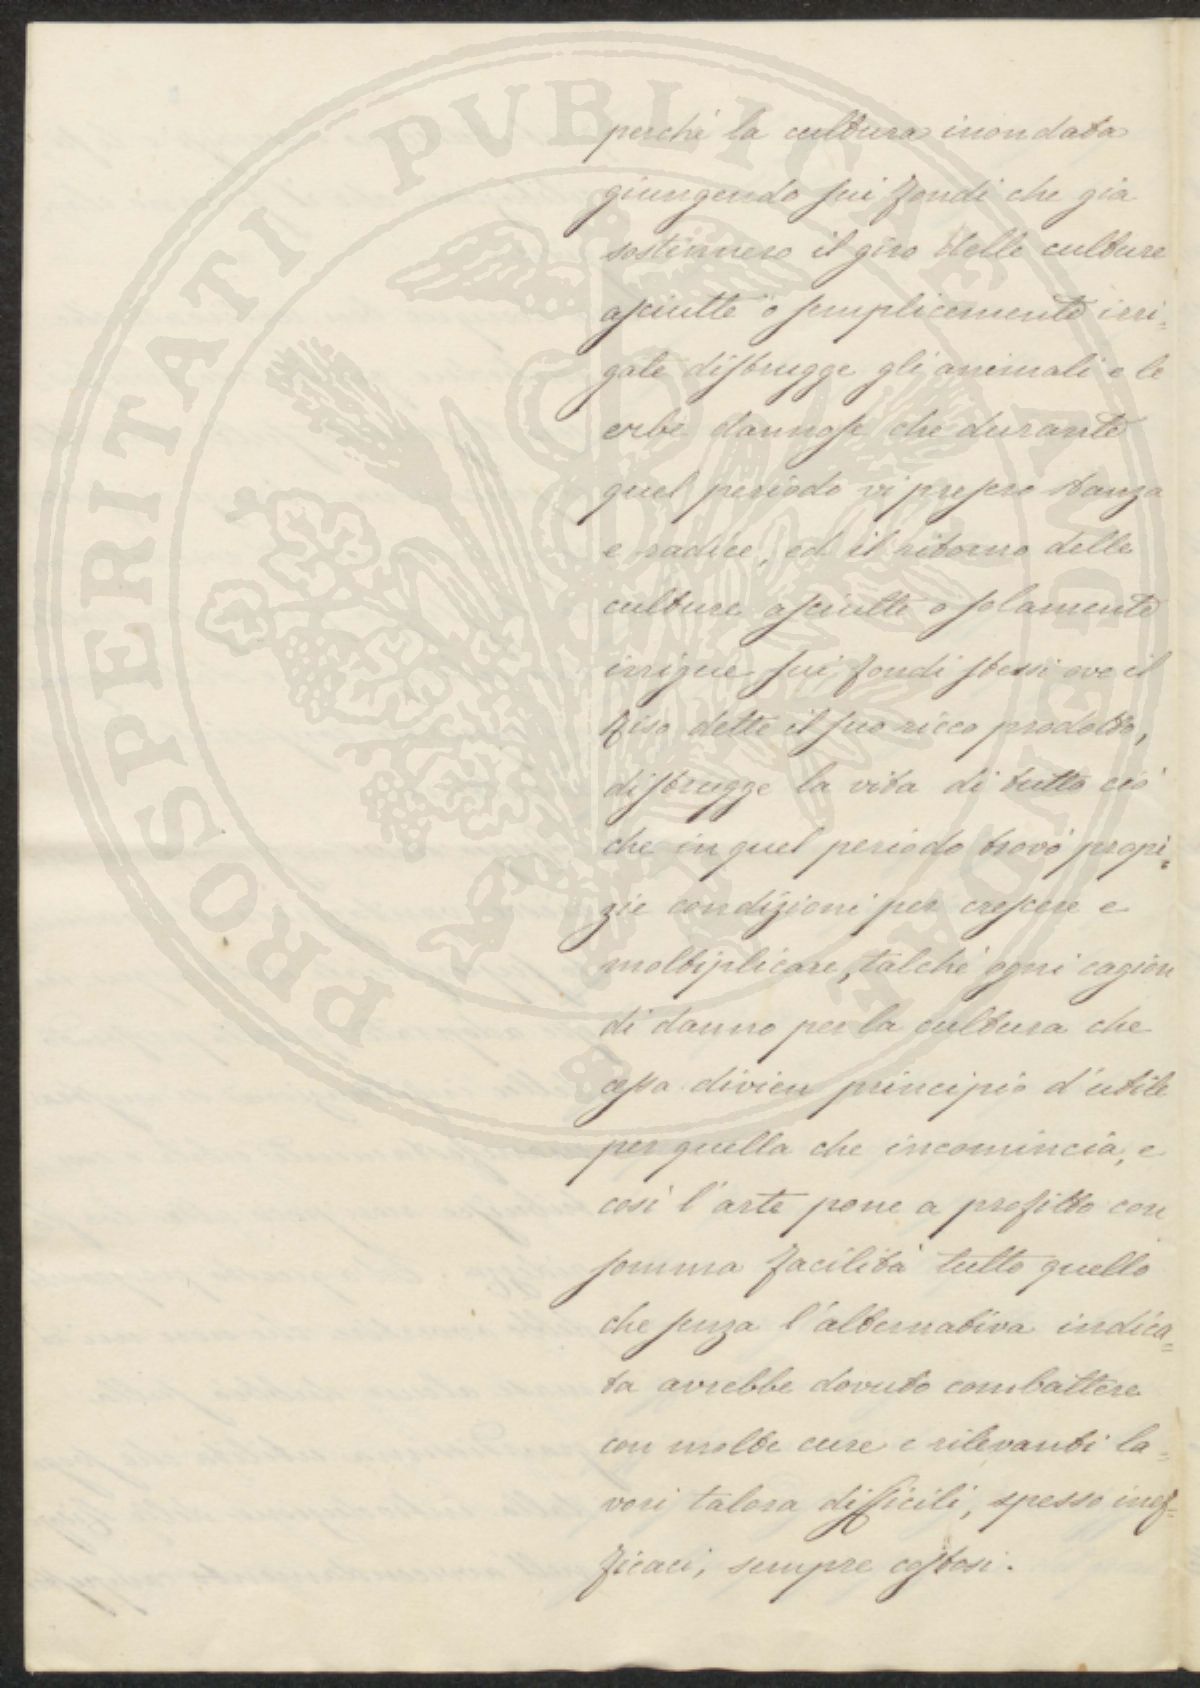 PROSPERITATI PVBLICAE AVGENDAE
perché la cultura inondata
giungendo sui fondi che già
sostennero il giro delle culture
asciutte o semplicemente irri=
gate distrugge gli animali e le
erbe dannose che durante
quel periodo vi presero stanza
e radice, ed il ritorno delle
culture asciutte o solamente
irrigue sui fondi stessi ove il
riso dette il suo ricco prodotto,
distrugge la vita di tutto ciò
che in quel periodo trovò propi=
zie condizioni per crescere e
moltiplicare, talché ogni cagion
di danno per la cultura che
cessa divien principio d'utile
per quella che incomincia, e
così l'arte pone a profitto con
somma facilità tutto quello
che senza l'alternativa indica=
ta avrebbe dovuto combattere
con molte cure e rilevanti la=
vori talora difficili, spesso inef=
ficaci, sempre costosi.